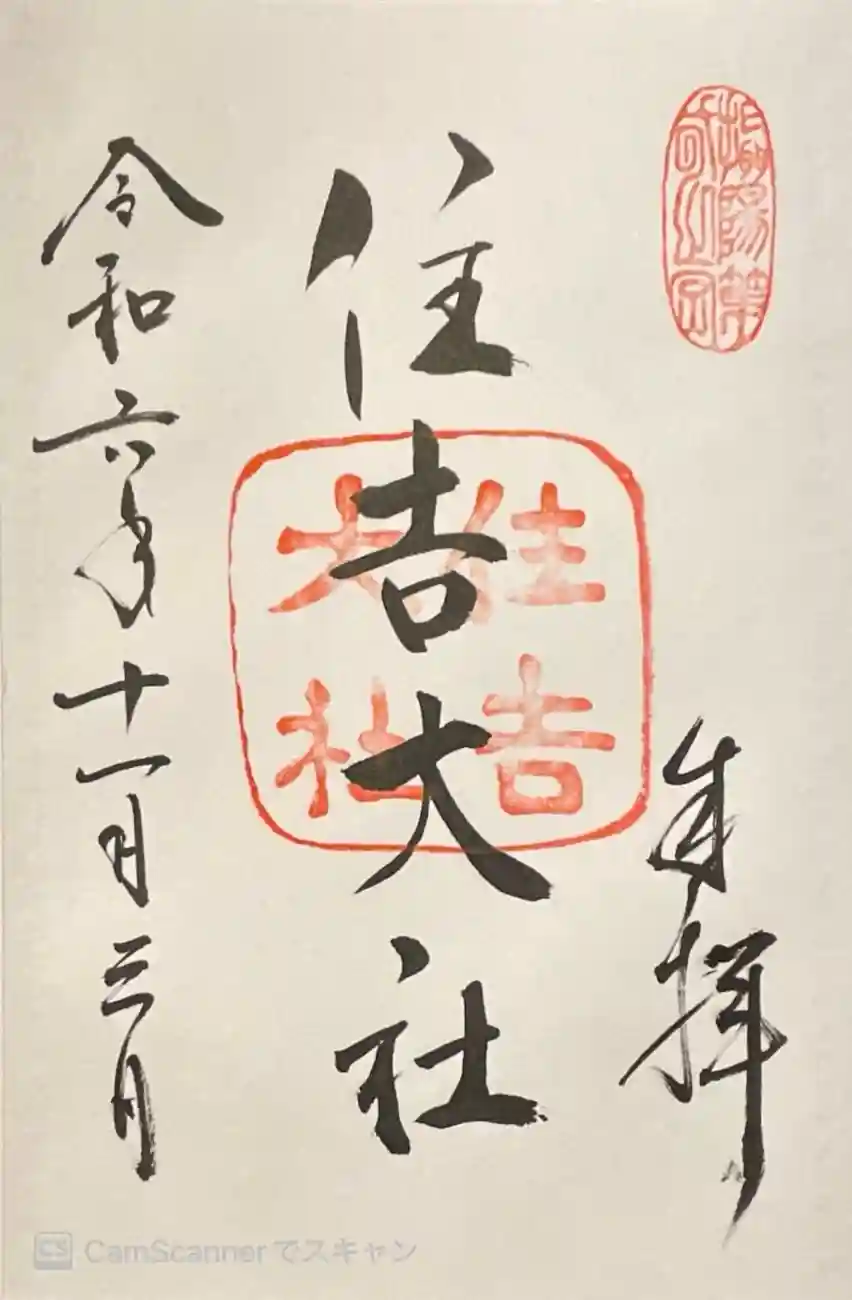 奉拝
住吉大社
住吉大社
令和六年十一月三日
CamScannerでスキャン